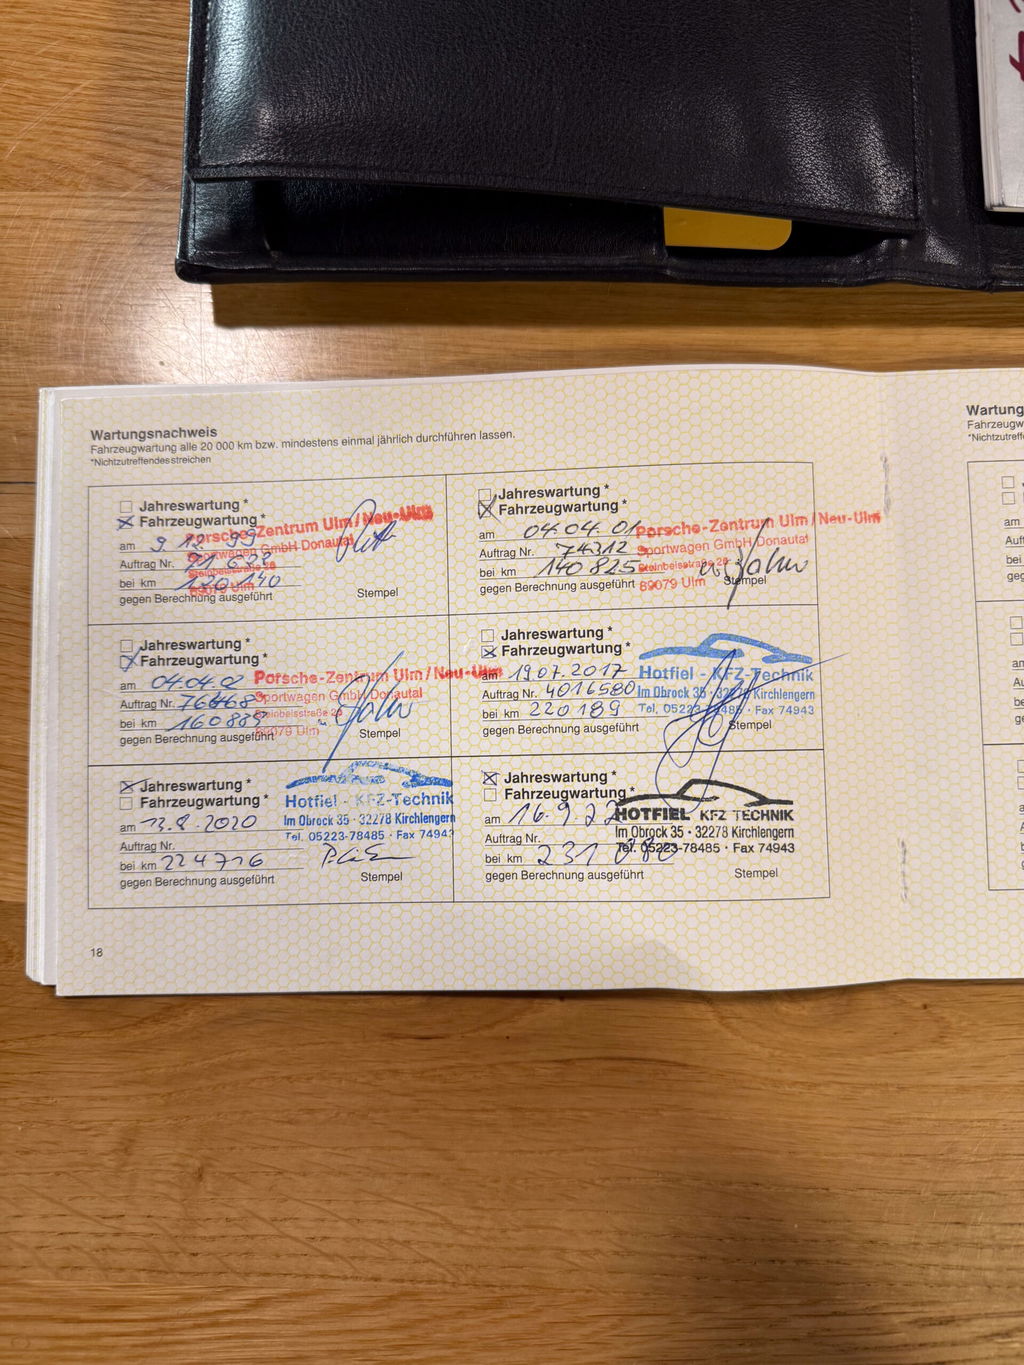 Wartungsnachweis
Fahrzeugwartung alle 20 000 km bzw. mindestens einmal jährlich durchführen lassen.
*Nichtzutreffendes streichen
Jahreswartung *
Fahrzeugwartung *
am 9. 12. 99
Auftrag Nr.
bei km 120 140
gegen Berechnung ausgeführt
Stempel
Porsche-Zentrum Ulm / Neu-Ulm
Sportwagen GmbH Donautal
Steinbeisstraße 28
89079 Ulm
Jahreswartung *
Fahrzeugwartung *
am 04.04.01
Auftrag Nr. 74312
bei km 140 825
gegen Berechnung ausgeführt
Stempel
Porsche-Zentrum Ulm / Neu-Ulm
Sportwagen GmbH Donautal
Steinbeisstraße 28
89079 Ulm
Jahreswartung *
Fahrzeugwartung *
am 04.04.02
Auftrag Nr. 76468
bei km 160 885
gegen Berechnung ausgeführt
Stempel
Porsche-Zentrum Ulm / Neu-Ulm
Sportwagen GmbH Donautal
Steinbeisstraße 28
89079 Ulm
Jahreswartung *
Fahrzeugwartung *
am 19.07.2017
Auftrag Nr. 4016580
bei km 220 189
gegen Berechnung ausgeführt
Stempel
Hotfiel - KFZ-Technik
Im Obrock 35 · 32278 Kirchlengern
Tel. 05223-78485 · Fax 74943
Jahreswartung *
Fahrzeugwartung *
am 13.8.2020
Auftrag Nr.
bei km 224 716
gegen Berechnung ausgeführt
Stempel
Hotfiel - KFZ-Technik
Im Obrock 35 · 32278 Kirchlengern
Tel. 05223-78485 · Fax 74943
Jahreswartung *
Fahrzeugwartung *
am 16.9.22
Auftrag Nr.
bei km 231 080
gegen Berechnung ausgeführt
Stempel
HOTFIEL KFZ TECHNIK
Im Obrock 35 · 32278 Kirchlengern
Tel. 05223-78485 · Fax 74943
18